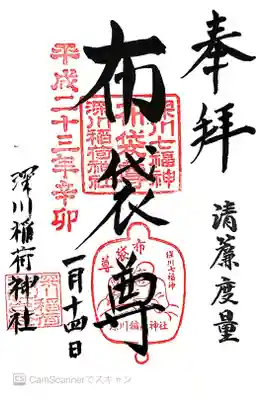 奉拝
清簾度量
深川七福神
布袋尊
深川稲荷神社
布袋尊
深川七福神
布袋尊
深川稲荷神社
平成二十三年辛卯
一月十四日
深川稲荷神社
CS CamScannerでスキャン